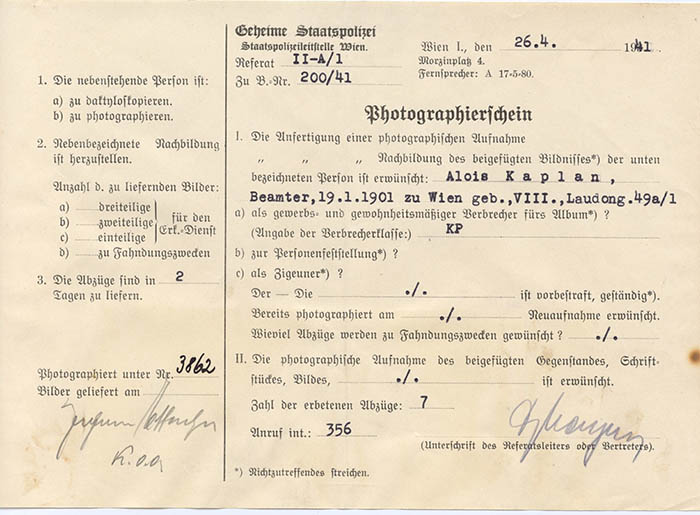 1. Die nebenstehende Person ist:
a) zu daktyloskopieren.
b) zu photographieren.
2. Nebenbezeichnete Nachbildung
ist herzustellen.
Anzahl d. zu liefernden Bilder:
a) dreiteilige
b) zweiteilige
c) einteilige
für den
Erk.-Dienst
d) zu Fahndungszwecken
3. Die Abzüge sind in 2
Tagen zu liefern.
Photographiert unter Nr. 3862
Bilder geliefert am
K.O.A
Geheime Staatspolizei
Staatspolizeileitstelle Wien.
Referat II-A/1
Zu B.-Nr. 200/41
Wien I., den 26.4. 1941
Morzinplatz 4.
Fernsprecher: A 17-5-80.
Photographierschein
I. Die Anfertigung einer photographischen Aufnahme
„ „ „ Nachbildung des beigefügten Bildnisses*) der unten
bezeichneten Person ist erwünscht: Alois Kaplan,
Beamter,19.1.1901 zu Wien geb.,VIII.,Laudong.49a/1
a) als gewerbs- und gewohnheitsmäßiger Verbrecher fürs Album*) ?
(Angabe der Verbrecherklasse:) KP
b) zur Personenfeststellung*) ?
c) als Zigeuner*) ?
Der — Die ./. ist vorbestraft, geständig*).
Bereits photographiert am ./. Neuaufnahme erwünscht.
Wieviel Abzüge werden zu Fahndungszwecken gewünscht ? ./.
II. Die photographische Aufnahme des beigefügten Gegenstandes, Schrift-
stückes, Bildes, ./. ist erwünscht.
Zahl der erbetenen Abzüge: 7
Anruf int.: 356
(Unterschrift des Referatsleiters oder Vertreters).
*) Nichtzutreffendes streichen.